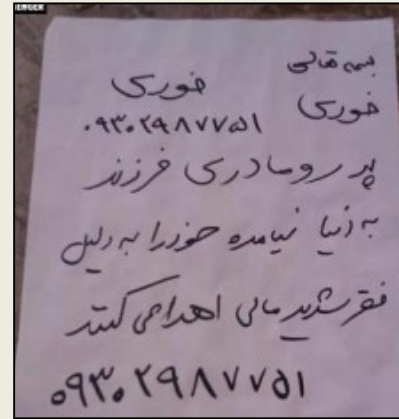 بسمه تعالی
فوری فوری
۰۹۳۰۲۹۸۷۷۵۱
پدر و مادری فرزند
به دنیا نیامده خود را به دلیل
فقر شدید مالی اهدا می کنند
۰۹۳۰۲۹۸۷۷۵۱